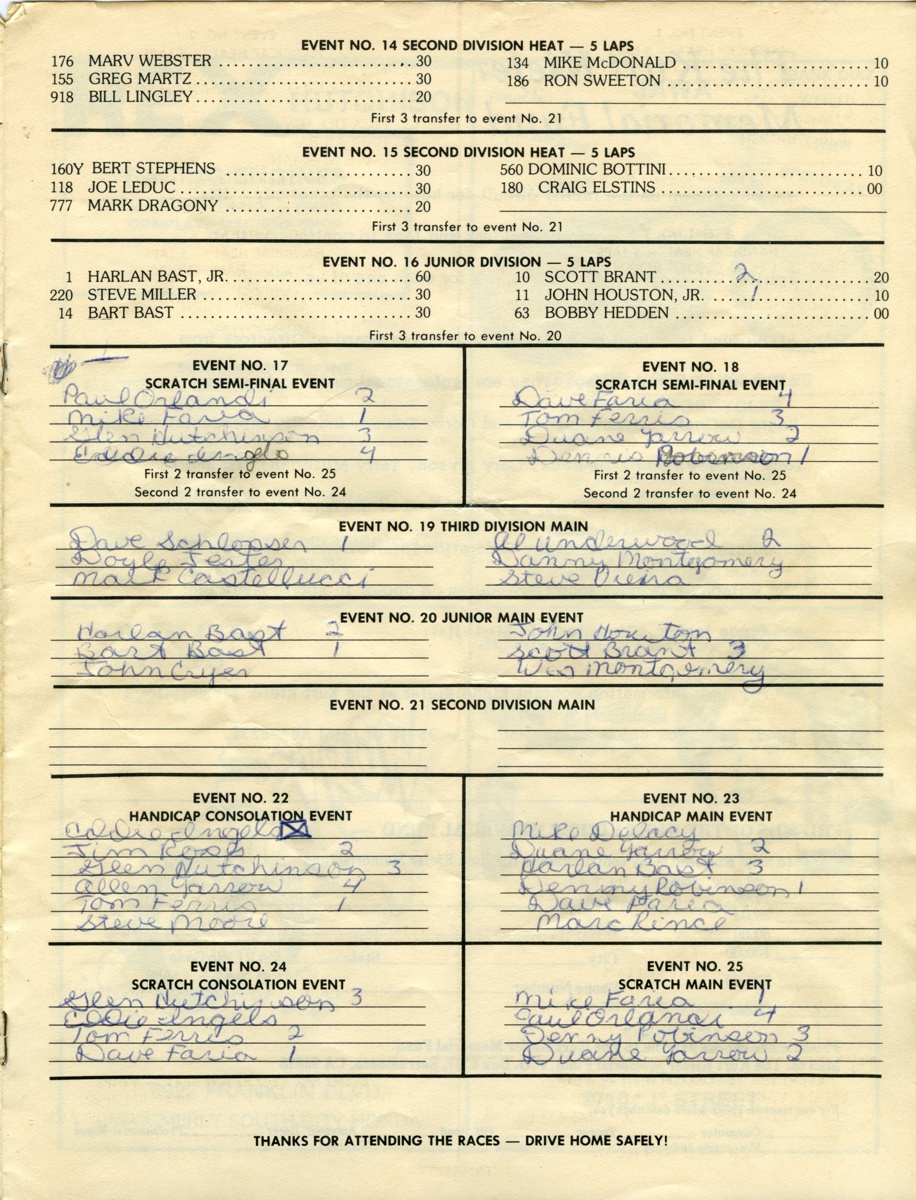 EVENT NO. 14 SECOND DIVISION HEAT — 5 LAPS
176 MARV WEBSTER .................... 30
155 GREG MARTZ .................... 30
918 BILL LINGLEY .................... 20
134 MIKE McDONALD .................... 10
186 RON SWEETON .................... 10
First 3 transfer to event No. 21
EVENT NO. 15 SECOND DIVISION HEAT — 5 LAPS
160Y BERT STEPHENS .................... 30
118 JOE LEDUC .................... 30
777 MARK DRAGONY .................... 20
560 DOMINIC BOTTINI .................... 10
180 CRAIG ELSTINS .................... 00
First 3 transfer to event No. 21
EVENT NO. 16 JUNIOR DIVISION — 5 LAPS
1 HARLAN BAST, JR. .................... 60
220 STEVE MILLER .................... 30
14 BART BAST .................... 30
10 SCOTT BRANT ....... 2 ....... 20
11 JOHN HOUSTON, JR. ..... 1 ..... 10
63 BOBBY HEDDEN .................... 00
First 3 transfer to event No. 20
EVENT NO. 17
SCRATCH SEMI-FINAL EVENT
Paul Orlandi 2
Mike Faria 1
Glen Hutchinson 3
Eddie Angelo 4
First 2 transfer to event No. 25
Second 2 transfer to event No. 24
EVENT NO. 18
SCRATCH SEMI-FINAL EVENT
Dave Faria 4
Tom Ferris 3
Duane Yarrow 2
Dennis Robinson 1
First 2 transfer to event No. 25
Second 2 transfer to event No. 24
EVENT NO. 19 THIRD DIVISION MAIN
Dave Schlosser 1
Doyle Jester
Mark Castellucci
Al Underwood 2
Danny Montgomery
Steve
EVENT NO. 20 JUNIOR MAIN EVENT
Harlan Bast 2
Bart Bast 1
John Cryer
John Houston
Scott Brant 3
Montgomery
EVENT NO. 21 SECOND DIVISION MAIN
EVENT NO. 22
HANDICAP CONSOLATION EVENT
Eddie Angelo
Jim 2
Glen Hutchinson 3
Allen Yarrow 4
Tom Ferris 1
Steve Moore
EVENT NO. 23
HANDICAP MAIN EVENT
Mike Delacy
Duane Yarrow 2
Harlan Bast 3
Denny Robinson 1
Dave Faria
Marc Rince
EVENT NO. 24
SCRATCH CONSOLATION EVENT
Glen Hutchinson 3
Eddie Angelo
Tom Ferris 2
Dave Faria 1
EVENT NO. 25
SCRATCH MAIN EVENT
Mike Faria 1
Paul Orlandi 4
Denny Robinson 3
Duane Yarrow 2
THANKS FOR ATTENDING THE RACES — DRIVE HOME SAFELY!